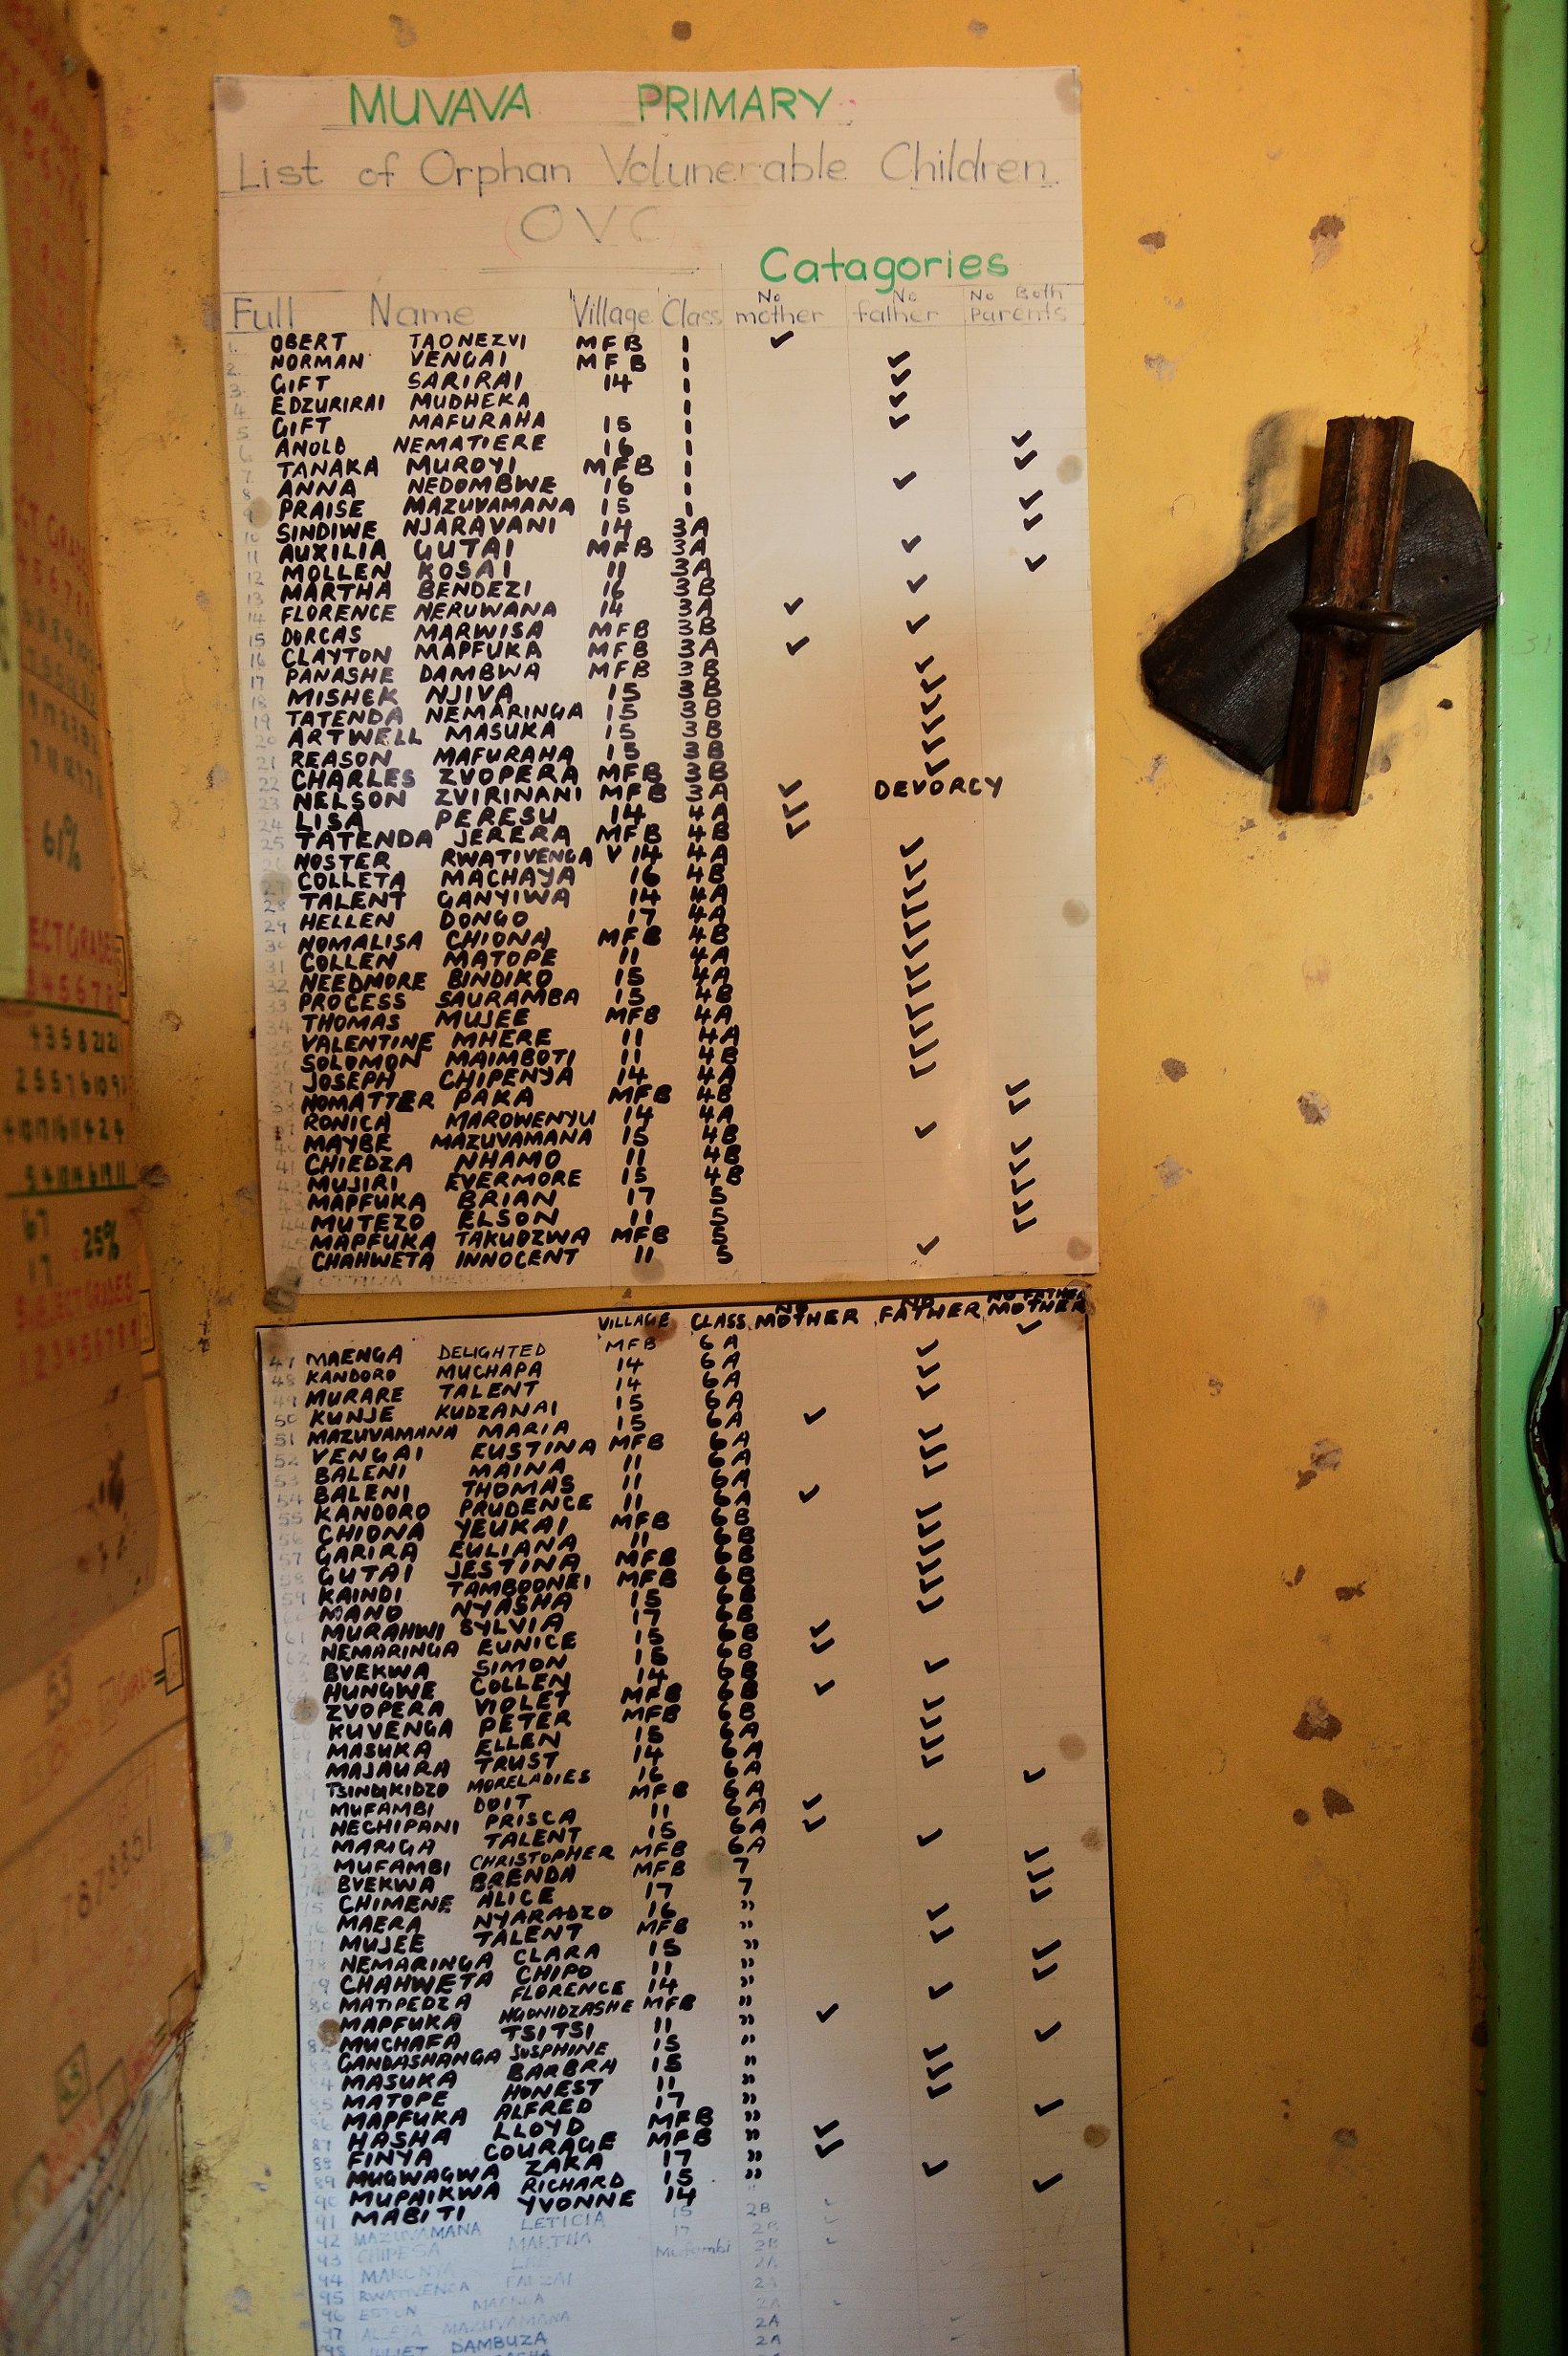 MUVAVA PRIMARY
List of Orphan Volunerable Children
OVC
Catagories
Full Name Village Class No mother No father No Both Parents
1 OBERT TAONEZVI MFB 1
2 NORMAN VENGAI MFB 1
3 GIFT SARIRAI 14 1
4 EDZURIRAI MUDHEKA 1
5 GIFT MAFURAHA 15 1
6 ANOLD NEMATIERE 16 1
7 TANAKA MUROYI MFB 1
8 ANNA NEDOMBWE 16 1
9 PRAISE MAZUVAMANA 15 1
10 SINDIWE NJARAVANI 14 3A
11 AUXILIA GUTAI MFB 3A
12 MOLLEN KOSAI 11 3A
13 MARTHA BENDEZI 16 3B
14 FLORENCE NERUWANA 14 3A
15 DORCAS MARWISA MFB 3B
16 CLAYTON MAPFUKA MFB 3A
17 PANASHE DAMBWA MFB 3B
18 MISHEK NJIVA 15 3B
19 TATENDA NEMARINGA 15 3B
20 ARTWELL MASUKA 15 3B
21 REASON MAFURAHA 15 3B
22 CHARLES ZVOPERA MFB 3B
23 NELSON ZVIRINANI MFB 3A DEVORCY
24 LISA PERESU 14 4A
25 TATENDA JERERA MFB 4B
26 NOSTER RWATIVENGA V 14 4A
27 COLLETA MACHAYA 16 4B
28 TALENT GANYIWA 14 4A
29 HELLEN DONGO 17 4A
30 NOMALISA CHIONA MFB 4B
31 COLLEN MATOPE 11 4A
32 NEEDMORE BINDIKO 15 4A
33 PROCESS SAURAMBA 15 4B
34 THOMAS MUJEE MFB 4A
35 VALENTINE MHERE 11 4A
36 SOLOMON MAIMBOTI 11 4B
37 JOSEPH CHIPENYA 14 4A
38 NOMATTER PAKA MFB 4B
39 RONICA MAROWENYU 14 4A
40 MAYBE MAZUVAMANA 15 4B
41 CHIEDZA NHAMO 11 4B
42 MUJIRI EVERMORE 15 4B
43 MAPFUKA BRIAN 17 5
44 MUTEZO ELSON 11 5
45 MAPFUKA TAKUDZWA MFB 5
CHAHWETA INNOCENT 11 5
VILLAGE CLASS NO MOTHER NO FATHER NO FATHER MOTHER
47 MAENGA DELIGHTED MFB 6A
48 KANDORO MUCHAPA 14 6A
49 MURARE TALENT 14 6A
50 KUNJE KUDZANAI 15 6A
51 MAZUVAMANA MARIA 15 6A
52 VENGAI EUSTINA MFB 6A
53 BALENI MAINA 11 6A
54 BALENI THOMAS 11 6A
55 KANDORO PRUDENCE 11 6A
56 CHIONA YEUKAI MFB 6B
57 GARIRA EULIANA 11 6B
58 GUTAI JESTINA MFB 6B
59 KAINDI TAMBOONEI MFB 6B
MANO NYASHA 15 6B
61 MURAHWI SYLVIA 17 6B
62 NEMARINGA EUNICE 15 6B
BVEKWA SIMON 15 6B
64 HUNGWE COLLEN 14 6B
ZVOPERA VIOLET MFB 6B
KUVENGA PETER MFB 6B
MASUKA ELLEN 15 6A
MAJAURA TRUST 14 6A
TSINDIKIDZO MORELADIES 16 6A
70 MUFAMBI DOIT MFB 6A
71 NECHIPANI PRISCA 11 6A
72 MARIGA TALENT 15 6A
73 MUFAMBI CHRISTOPHER MFB 6A
74 BVEKWA BRENDA MFB 7
75 CHIMENE ALICE 17 7
76 MAERA NYARADZO 16 "
77 MUJEE TALENT MFB "
78 NEMARINGA CLARA 15 "
79 CHAHWETA CHIPO 11 "
80 MATIPEDZA FLORENCE 14 "
MAPFUKA NGONIDZASHE MFB "
82 MUCHAFA TSITSI 11 "
83 GANDASHANGA JOSPHINE 15 "
84 MASUKA BARBRA 15 "
85 MATOPE HONEST 11 "
86 MAPFUKA ALFRED 17 "
87 HASHA LLOYD MFB "
88 FINYA COURAGE MFB "
89 MUGWAGWA ZAKA 17 "
90 MUPAIKWA RICHARD 15 "
91 MABITI YVONNE 14 "
92 MAZUVAMANA LETICIA 15 2B
93 CHIPESA MARTHA 17 2B
94 Mufambi 2B
95 RWATIVENGA 2A
96 2A
97 MAZUVAMANA 2A
98 JULIET DAMBUZA 2A
61%
25%